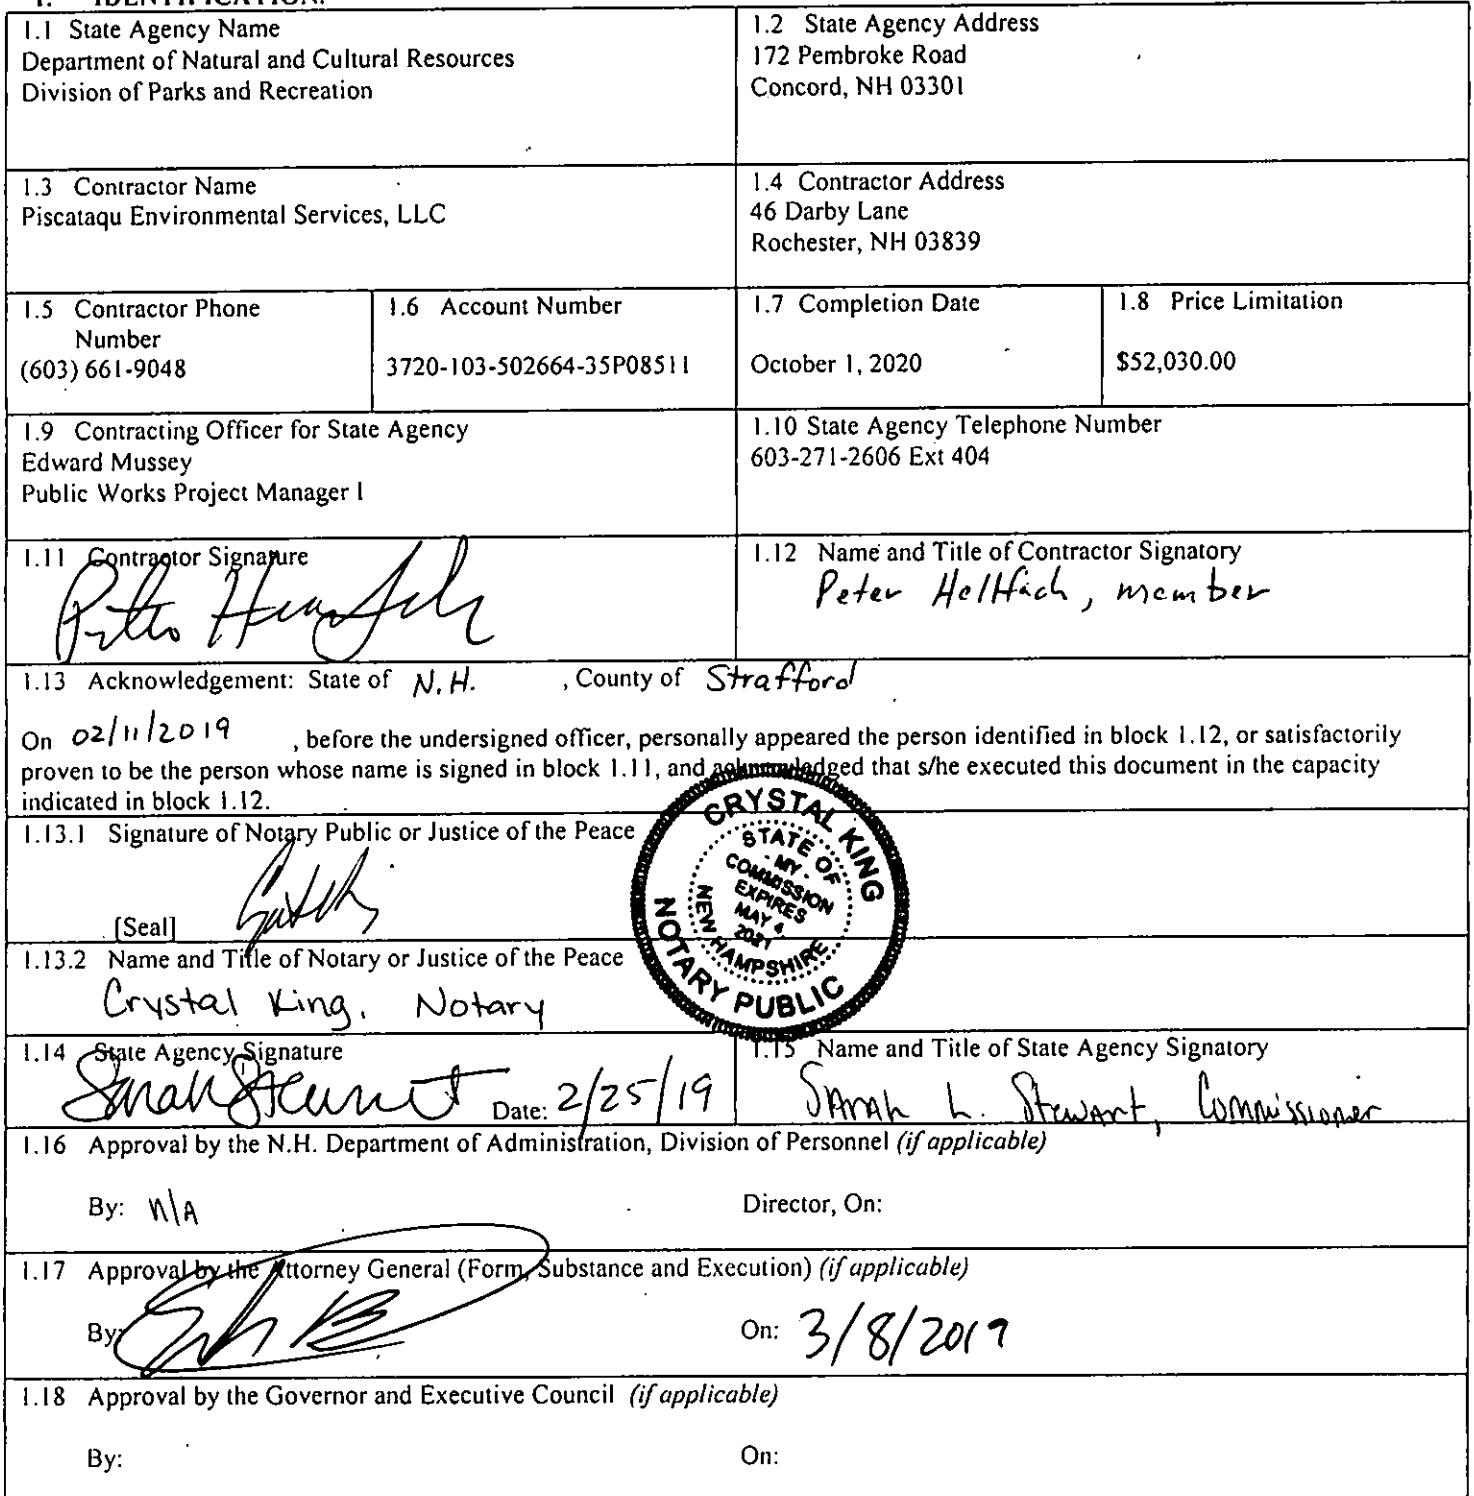 1. IDENTIFICATION.
1.1 State Agency Name
Department of Natural and Cultural Resources
Division of Parks and Recreation
1.2 State Agency Address
172 Pembroke Road
Concord, NH 03301
1.3 Contractor Name
Piscataqu Environmental Services, LLC
1.4 Contractor Address
46 Darby Lane
Rochester, NH 03839
1.5 Contractor Phone
Number
(603) 661-9048
1.6 Account Number
3720-103-502664-35P08511
1.7 Completion Date
October 1, 2020
1.8 Price Limitation
$52,030.00
1.9 Contracting Officer for State Agency
Edward Mussey
Public Works Project Manager I
1.10 State Agency Telephone Number
603-271-2606 Ext 404
1.11 Contractor Signature
1.12 Name and Title of Contractor Signatory
Peter , member
1.13 Acknowledgement: State of N.H. , County of Strafford
On 02/11/2019 , before the undersigned officer, personally appeared the person identified in block 1.12, or satisfactorily
proven to be the person whose name is signed in block 1.11, and acknowledged that s/he executed this document in the capacity
indicated in block 1.12.
1.13.1 Signature of Notary Public or Justice of the Peace
[Seal]
CRYSTAL KING
STATE OF
- MY -
COMMISSION
EXPIRES
MAY 4
2021
NEW HAMPSHIRE
NOTARY PUBLIC
1.13.2 Name and Title of Notary or Justice of the Peace
Crystal King, Notary
1.14 State Agency Signature
Sarah Stewart Date: 2/25/19
1.15 Name and Title of State Agency Signatory
Sarah L. Stewart, Commissioner
1.16 Approval by the N.H. Department of Administration, Division of Personnel (if applicable)
By: N/A Director, On:
1.17 Approval by the Attorney General (Form, Substance and Execution) (if applicable)
By: On: 3/8/2019
1.18 Approval by the Governor and Executive Council (if applicable)
By: On: